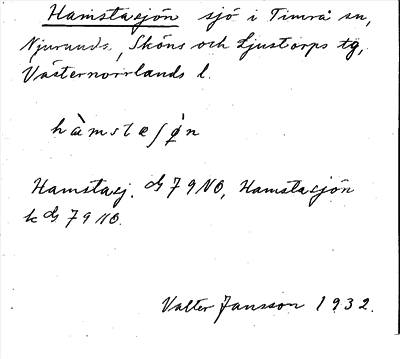 Hamstasjön sjö i Timrå sn,
Njurunds, Sköns och Ljustorps tg,
Västernorrlands l.
hàmstaʃǿn
Hamstasj. 79 NO, Hamstasjön
k 79 NO.
Valter Jansson 1932.